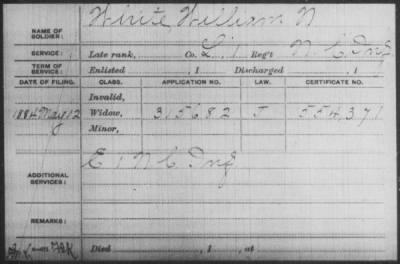 NAME OF SOLDIER: White, William N
SERVICE: Late rank, Co. L, 1 Reg't N C Inf
TERM OF SERVICE: Enlisted , 1 Discharged , 1
DATE OF FILING. CLASS. APPLICATION NO. LAW. CERTIFICATE NO.
Invalid,
1884 May 12 Widow, 315682 J 554,371
Minor,
ADDITIONAL SERVICES: E 1 N C Inf
REMARKS:
Died , 1 , at